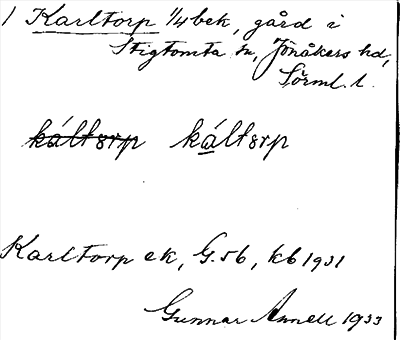 1 Karltorp 1/4 bek, gård i
Stigtomta sn, Jönåkers hd,
Sörml. l.
káltorp káltorp
Karltorp ek, G. 56, kb 1931
Gunnar Annell 1933